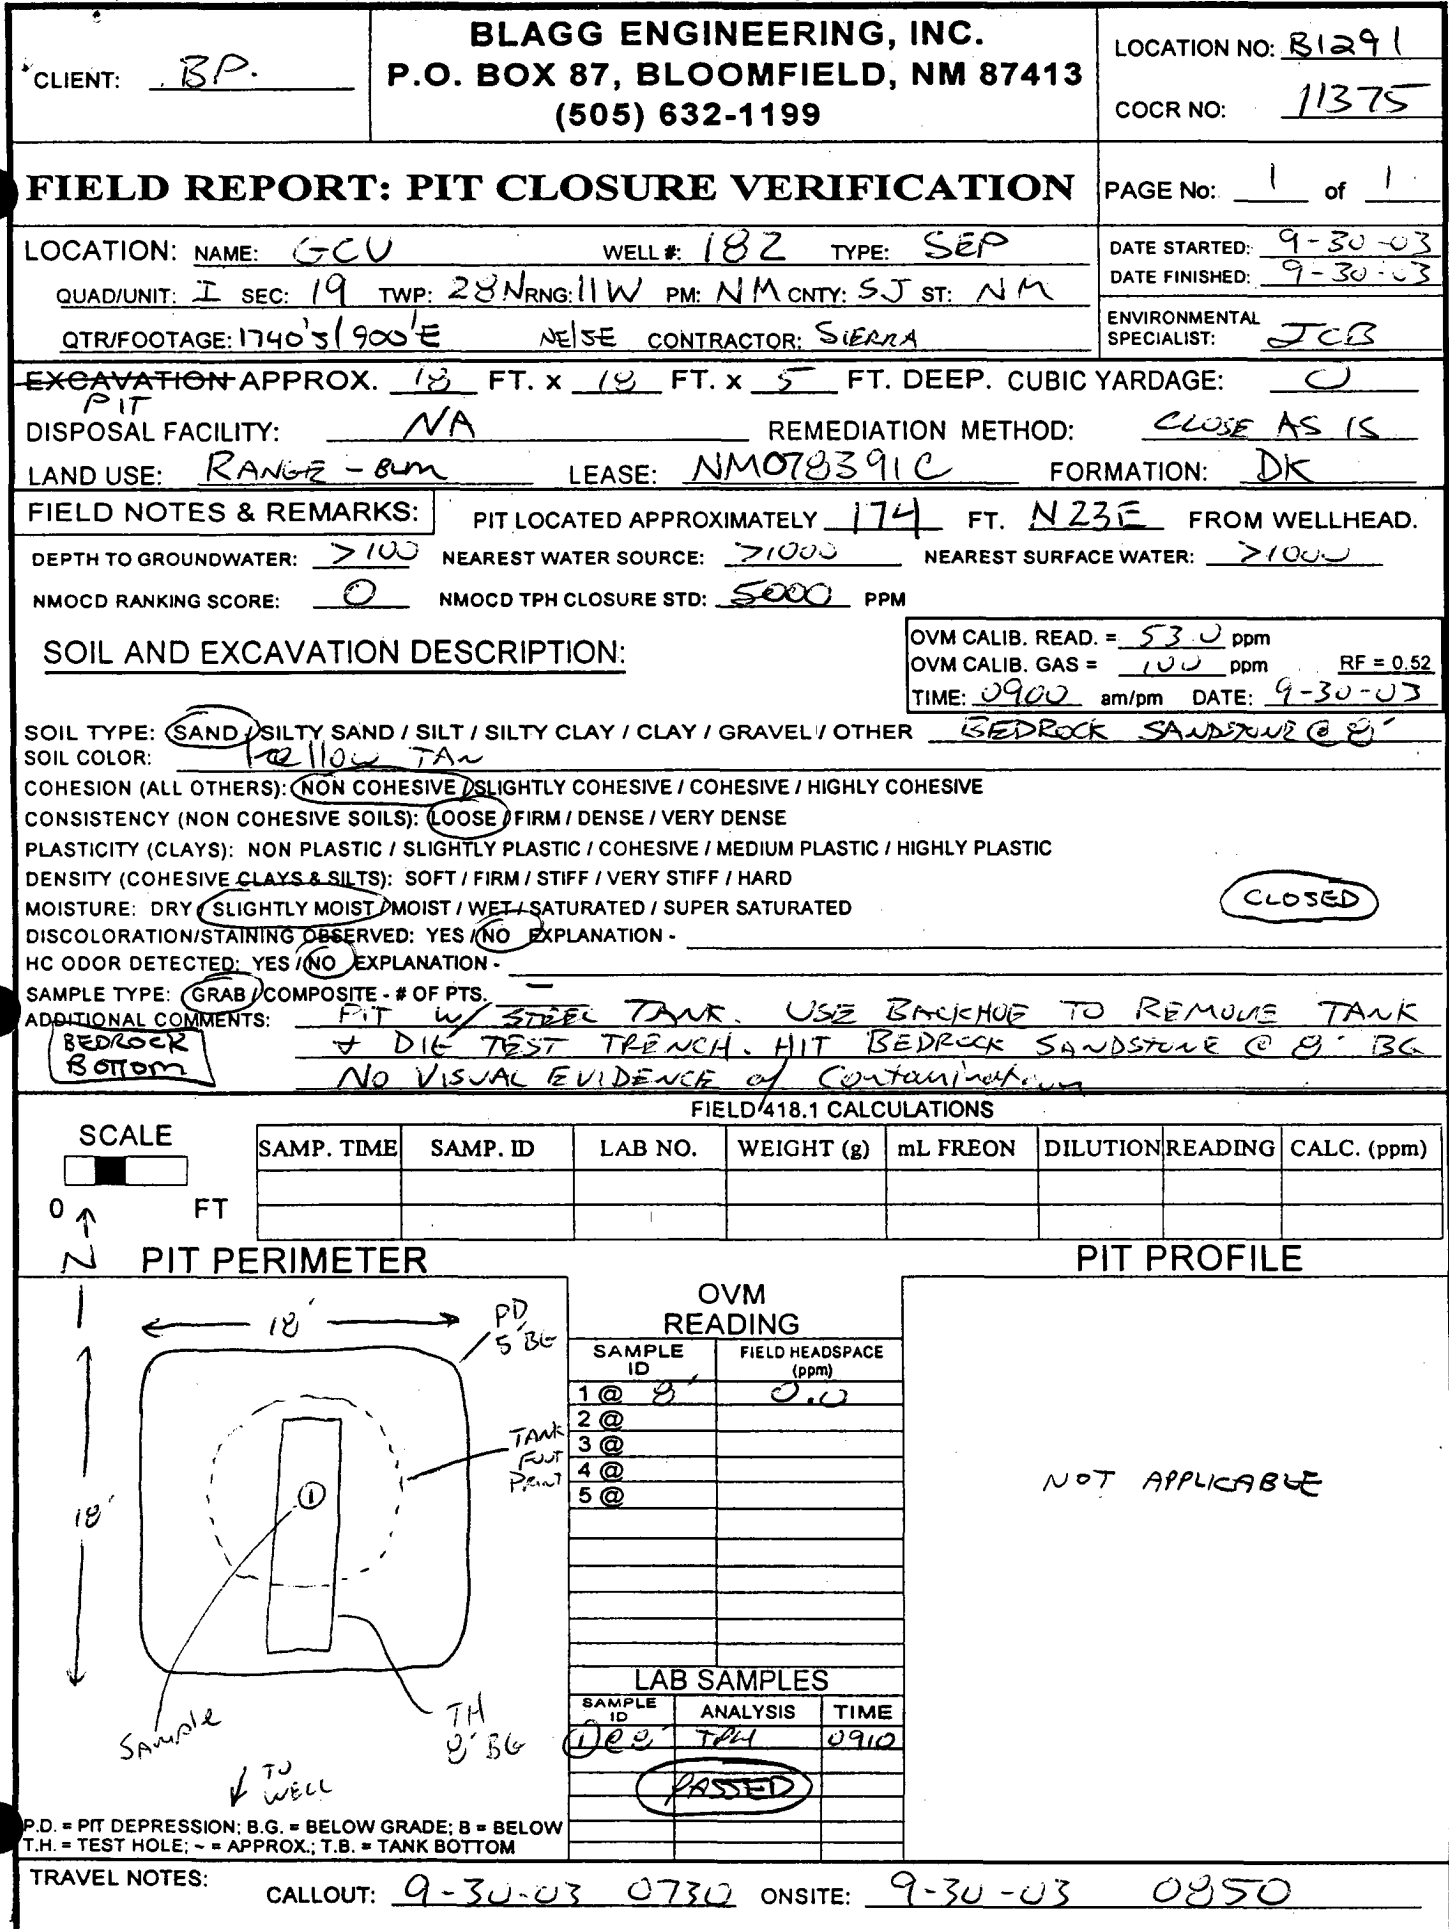 BLAGG ENGINEERING, INC.
P.O. BOX 87, BLOOMFIELD, NM 87413
(505) 632-1199
CLIENT: BP.
LOCATION NO: B1291
COCR NO: 11375
FIELD REPORT: PIT CLOSURE VERIFICATION
PAGE No: 1 of 1
LOCATION: NAME: GCU WELL #: 182 TYPE: SEP
QUAD/UNIT: I SEC: 19 TWP: 28N RNG: 11W PM: NM CNTY: SJ ST: NM
QTR/FOOTAGE: 1740'S/900'E NE/SE CONTRACTOR: SIERRA
DATE STARTED: 9-30-03
DATE FINISHED: 9-30-03
ENVIRONMENTAL SPECIALIST: JCB
EXCAVATION APPROX. 18 FT. x 18 FT. x 5 FT. DEEP. CUBIC YARDAGE: 0
PIT
DISPOSAL FACILITY: NA REMEDIATION METHOD: CLOSE AS IS
LAND USE: RANGE - BLM LEASE: NM078391C FORMATION: DK
FIELD NOTES & REMARKS: PIT LOCATED APPROXIMATELY 174 FT. N23E FROM WELLHEAD.
DEPTH TO GROUNDWATER: >100 NEAREST WATER SOURCE: >1000 NEAREST SURFACE WATER: >1000
NMOCD RANKING SCORE: 0 NMOCD TPH CLOSURE STD: 5000 PPM
SOIL AND EXCAVATION DESCRIPTION:
OVM CALIB. READ. = 53.0 ppm
OVM CALIB. GAS = 100 ppm RF = 0.52
TIME: 0900 am/pm DATE: 9-30-03
SOIL TYPE: SAND / SILTY SAND / SILT / SILTY CLAY / CLAY / GRAVEL / OTHER BEDROCK SANDSTONE @ 8'
SOIL COLOR: Yellow TAN
COHESION (ALL OTHERS): NON COHESIVE / SLIGHTLY COHESIVE / COHESIVE / HIGHLY COHESIVE
CONSISTENCY (NON COHESIVE SOILS): LOOSE / FIRM / DENSE / VERY DENSE
PLASTICITY (CLAYS): NON PLASTIC / SLIGHTLY PLASTIC / COHESIVE / MEDIUM PLASTIC / HIGHLY PLASTIC
DENSITY (COHESIVE CLAYS & SILTS): SOFT / FIRM / STIFF / VERY STIFF / HARD
MOISTURE: DRY / SLIGHTLY MOIST / MOIST / WET / SATURATED / SUPER SATURATED
CLOSED
DISCOLORATION/STAINING OBSERVED: YES / NO EXPLANATION -
HC ODOR DETECTED: YES / NO EXPLANATION -
SAMPLE TYPE: GRAB / COMPOSITE - # OF PTS. —
ADDITIONAL COMMENTS: PIT W/ STEEL TANK. USE BACKHOE TO REMOVE TANK
& DIG TEST TRENCH. HIT BEDROCK SANDSTONE @ 8' BG
NO VISUAL EVIDENCE of Contamination
BEDROCK
BOTTOM
FIELD 418.1 CALCULATIONS
SCALE
0 FT
SAMP. TIME SAMP. ID LAB NO. WEIGHT (g) mL FREON DILUTION READING CALC. (ppm)
N
PIT PERIMETER
PIT PROFILE
18'
PD
5' BG
TANK
FOOT
PRINT
18'
1
SAMPLE
TH
8' BG
TO
WELL
OVM
READING
SAMPLE ID FIELD HEADSPACE (ppm)
1 @ 8' 0.0
2 @
3 @
4 @
5 @
NOT APPLICABLE
LAB SAMPLES
SAMPLE ID ANALYSIS TIME
1 @ 8' TPH 0910
PASSED
P.D. = PIT DEPRESSION; B.G. = BELOW GRADE; B = BELOW
T.H. = TEST HOLE; ~ = APPROX.; T.B. = TANK BOTTOM
TRAVEL NOTES: CALLOUT: 9-30-03 0730 ONSITE: 9-30-03 0850